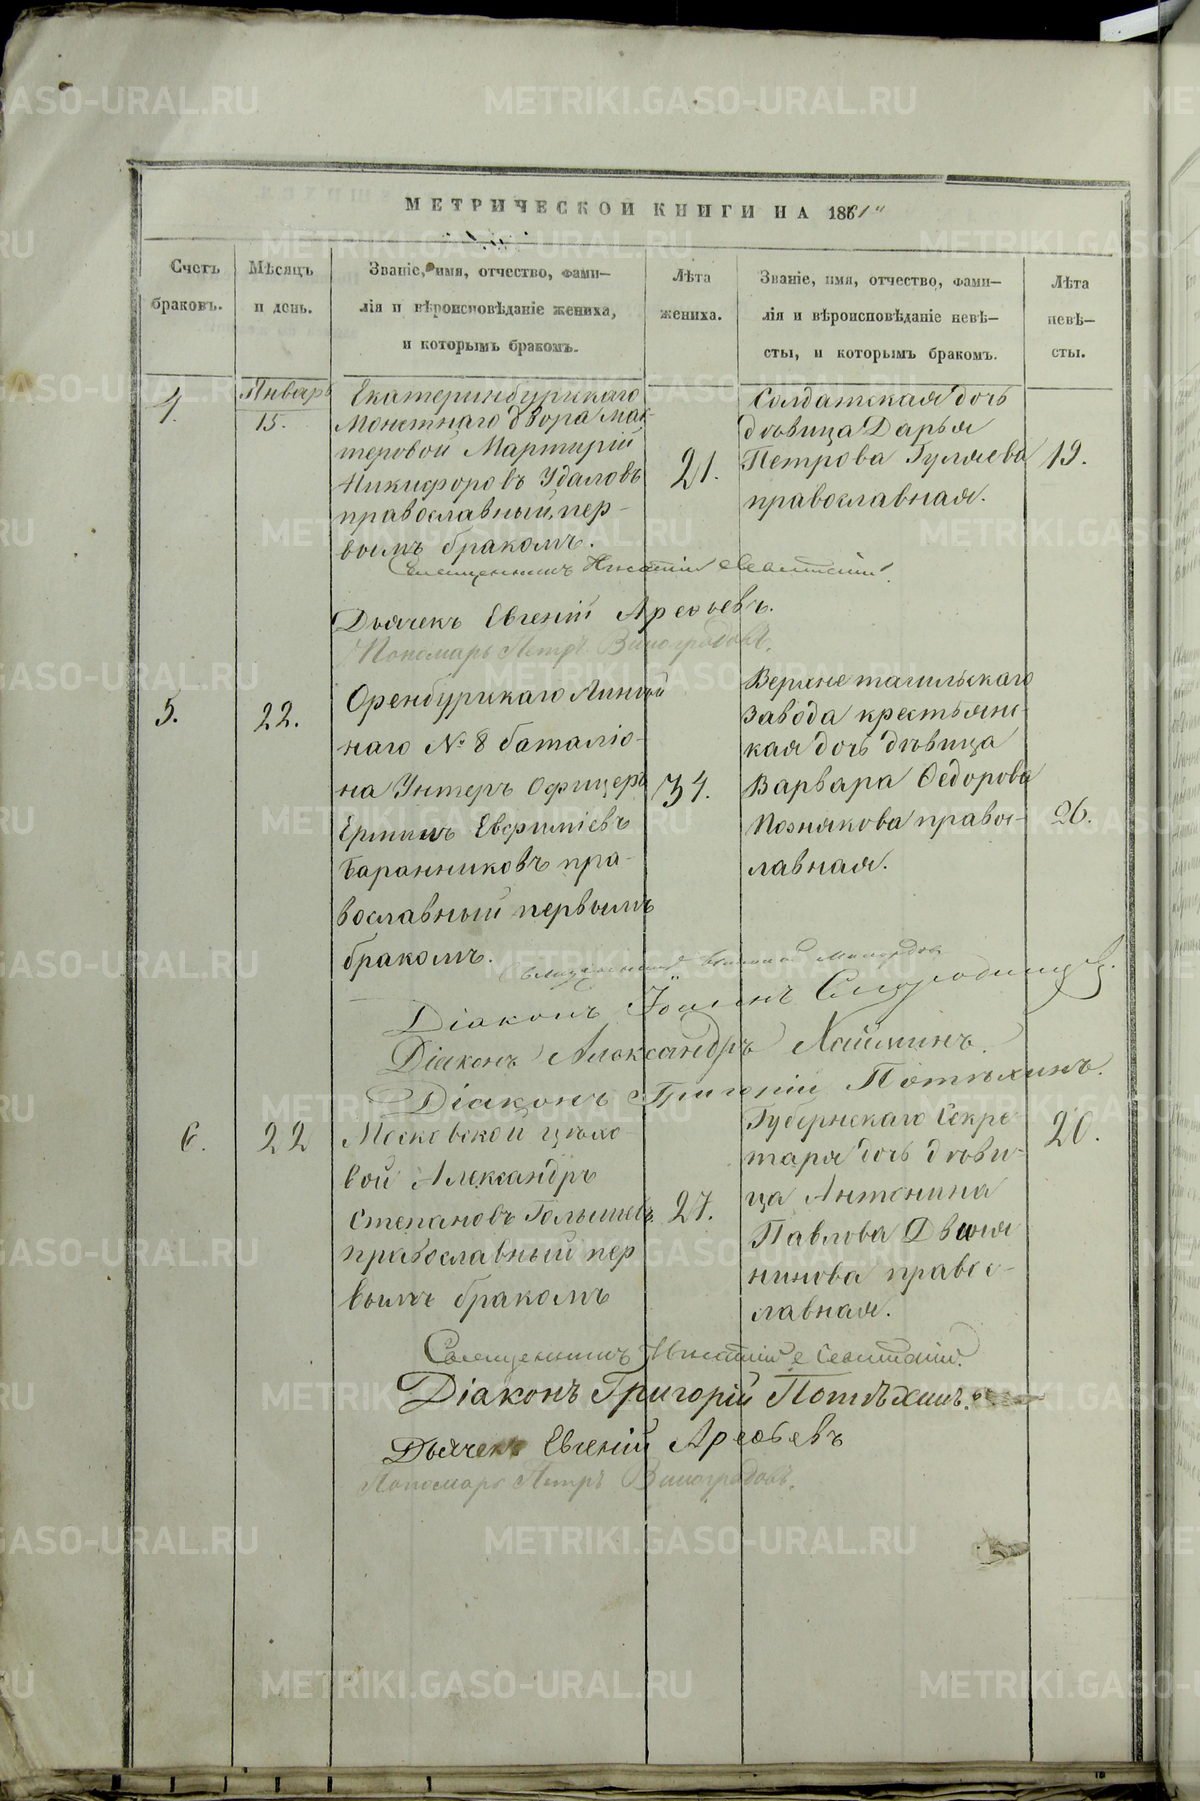 МЕТРИЧЕСКОЙ КНИГИ НА 1861
Счетъ браковъ.
Мѣсяцъ и день.
Званіе, имя, отчество, фами-
лія и вѣроисповѣданіе жениха,
и которымъ бракомъ.
Лѣта жениха.
Званіе, имя, отчество, фами-
лія и вѣроисповѣданіе невѣ-
сты, и которымъ бракомъ.
Лѣта невѣ-
сты.
4.
Январь
15.
Екатеринбургскаго
Монетнаго двора мас-
теровой Мартирій
Никифоровъ Удаловъ
православный, пер-
вымъ бракомъ.
21.
Солдатская дочь
дѣвица Дарья
Петрова Гуляева
православная.
19.
Священникъ Игнатій
Дьячекъ Евгеній Арефьевъ.
Пономарь Петръ Виноградовъ.
5.
22.
Оренбургскаго Линей
наго № 8 баталіо-
на Унтеръ Офицеръ
Ермилъ Евфиміевъ
Баранниковъ пра-
вославный первымъ
бракомъ.
34.
Верхнетагильскаго
завода крестьянс-
кая дочь дѣвица
Варвара Ѳедорова
Познякова правос-
лавная.
26.
Діаконъ Іоаннъ Смородинцевъ.
Діаконъ Александръ Хайминъ.
Діаконъ Григорій Потѣхинъ.
6.
22
Московской цѣхо-
вой Александръ
Степановъ Голышевъ
православный пер
вымъ бракомъ
27.
Губернскаго Секре-
таря дочь дѣви-
ца Антонина
Павлова Двоя
нинова правос-
лавная.
20.
Священникъ Игнатій
Діаконъ Григорій Потѣхинъ.
Дьячекъ Евгеній Арефьевъ
Пономарь Петръ Виноградовъ.
METRIKI.GASO-URAL.RU